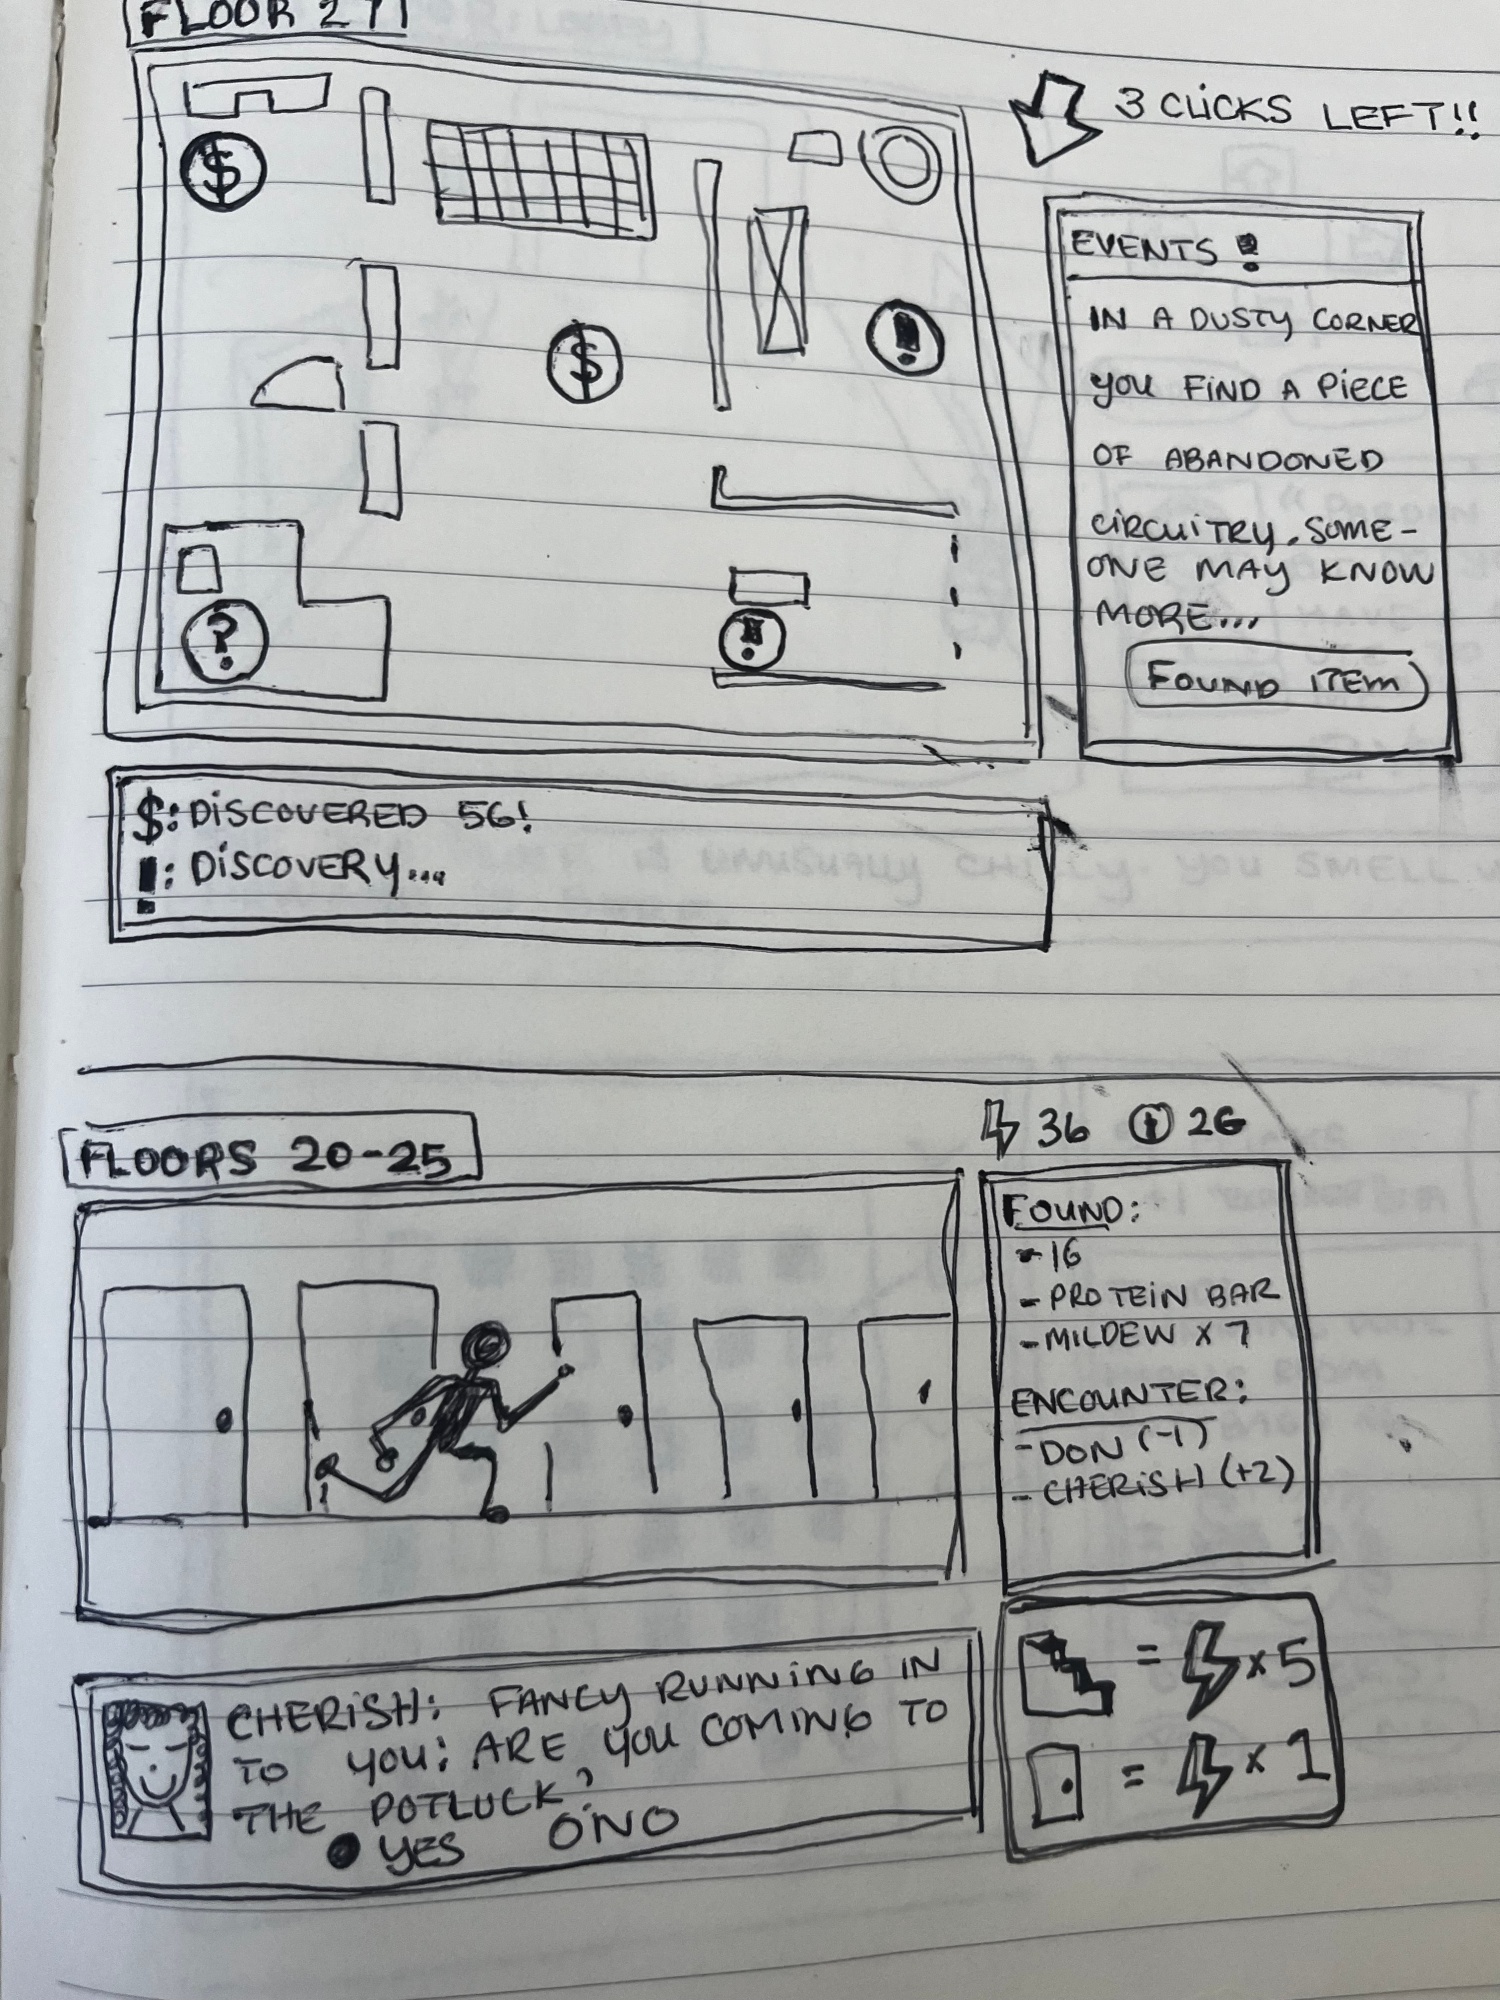 FLOOR 271
3 CLICKS LEFT!!
$
$
!
?
!
EVENTS !
IN A DUSTY CORNER
YOU FIND A PIECE
OF ABANDONED
CIRCUITRY. SOME-
ONE MAY KNOW
MORE...
FOUND ITEM
$: DISCOVERED 56!
!: DISCOVERY...
FLOORS 20-25
36
26
FOUND:
- 16
- PROTEIN BAR
- MILDEW x 7
ENCOUNTER:
- DON (-1)
- CHERISH (+2)
CHERISH: FANCY RUNNING IN
TO YOU: ARE YOU COMING TO
THE POTLUCK?
YES NO
= x 5
= x 1